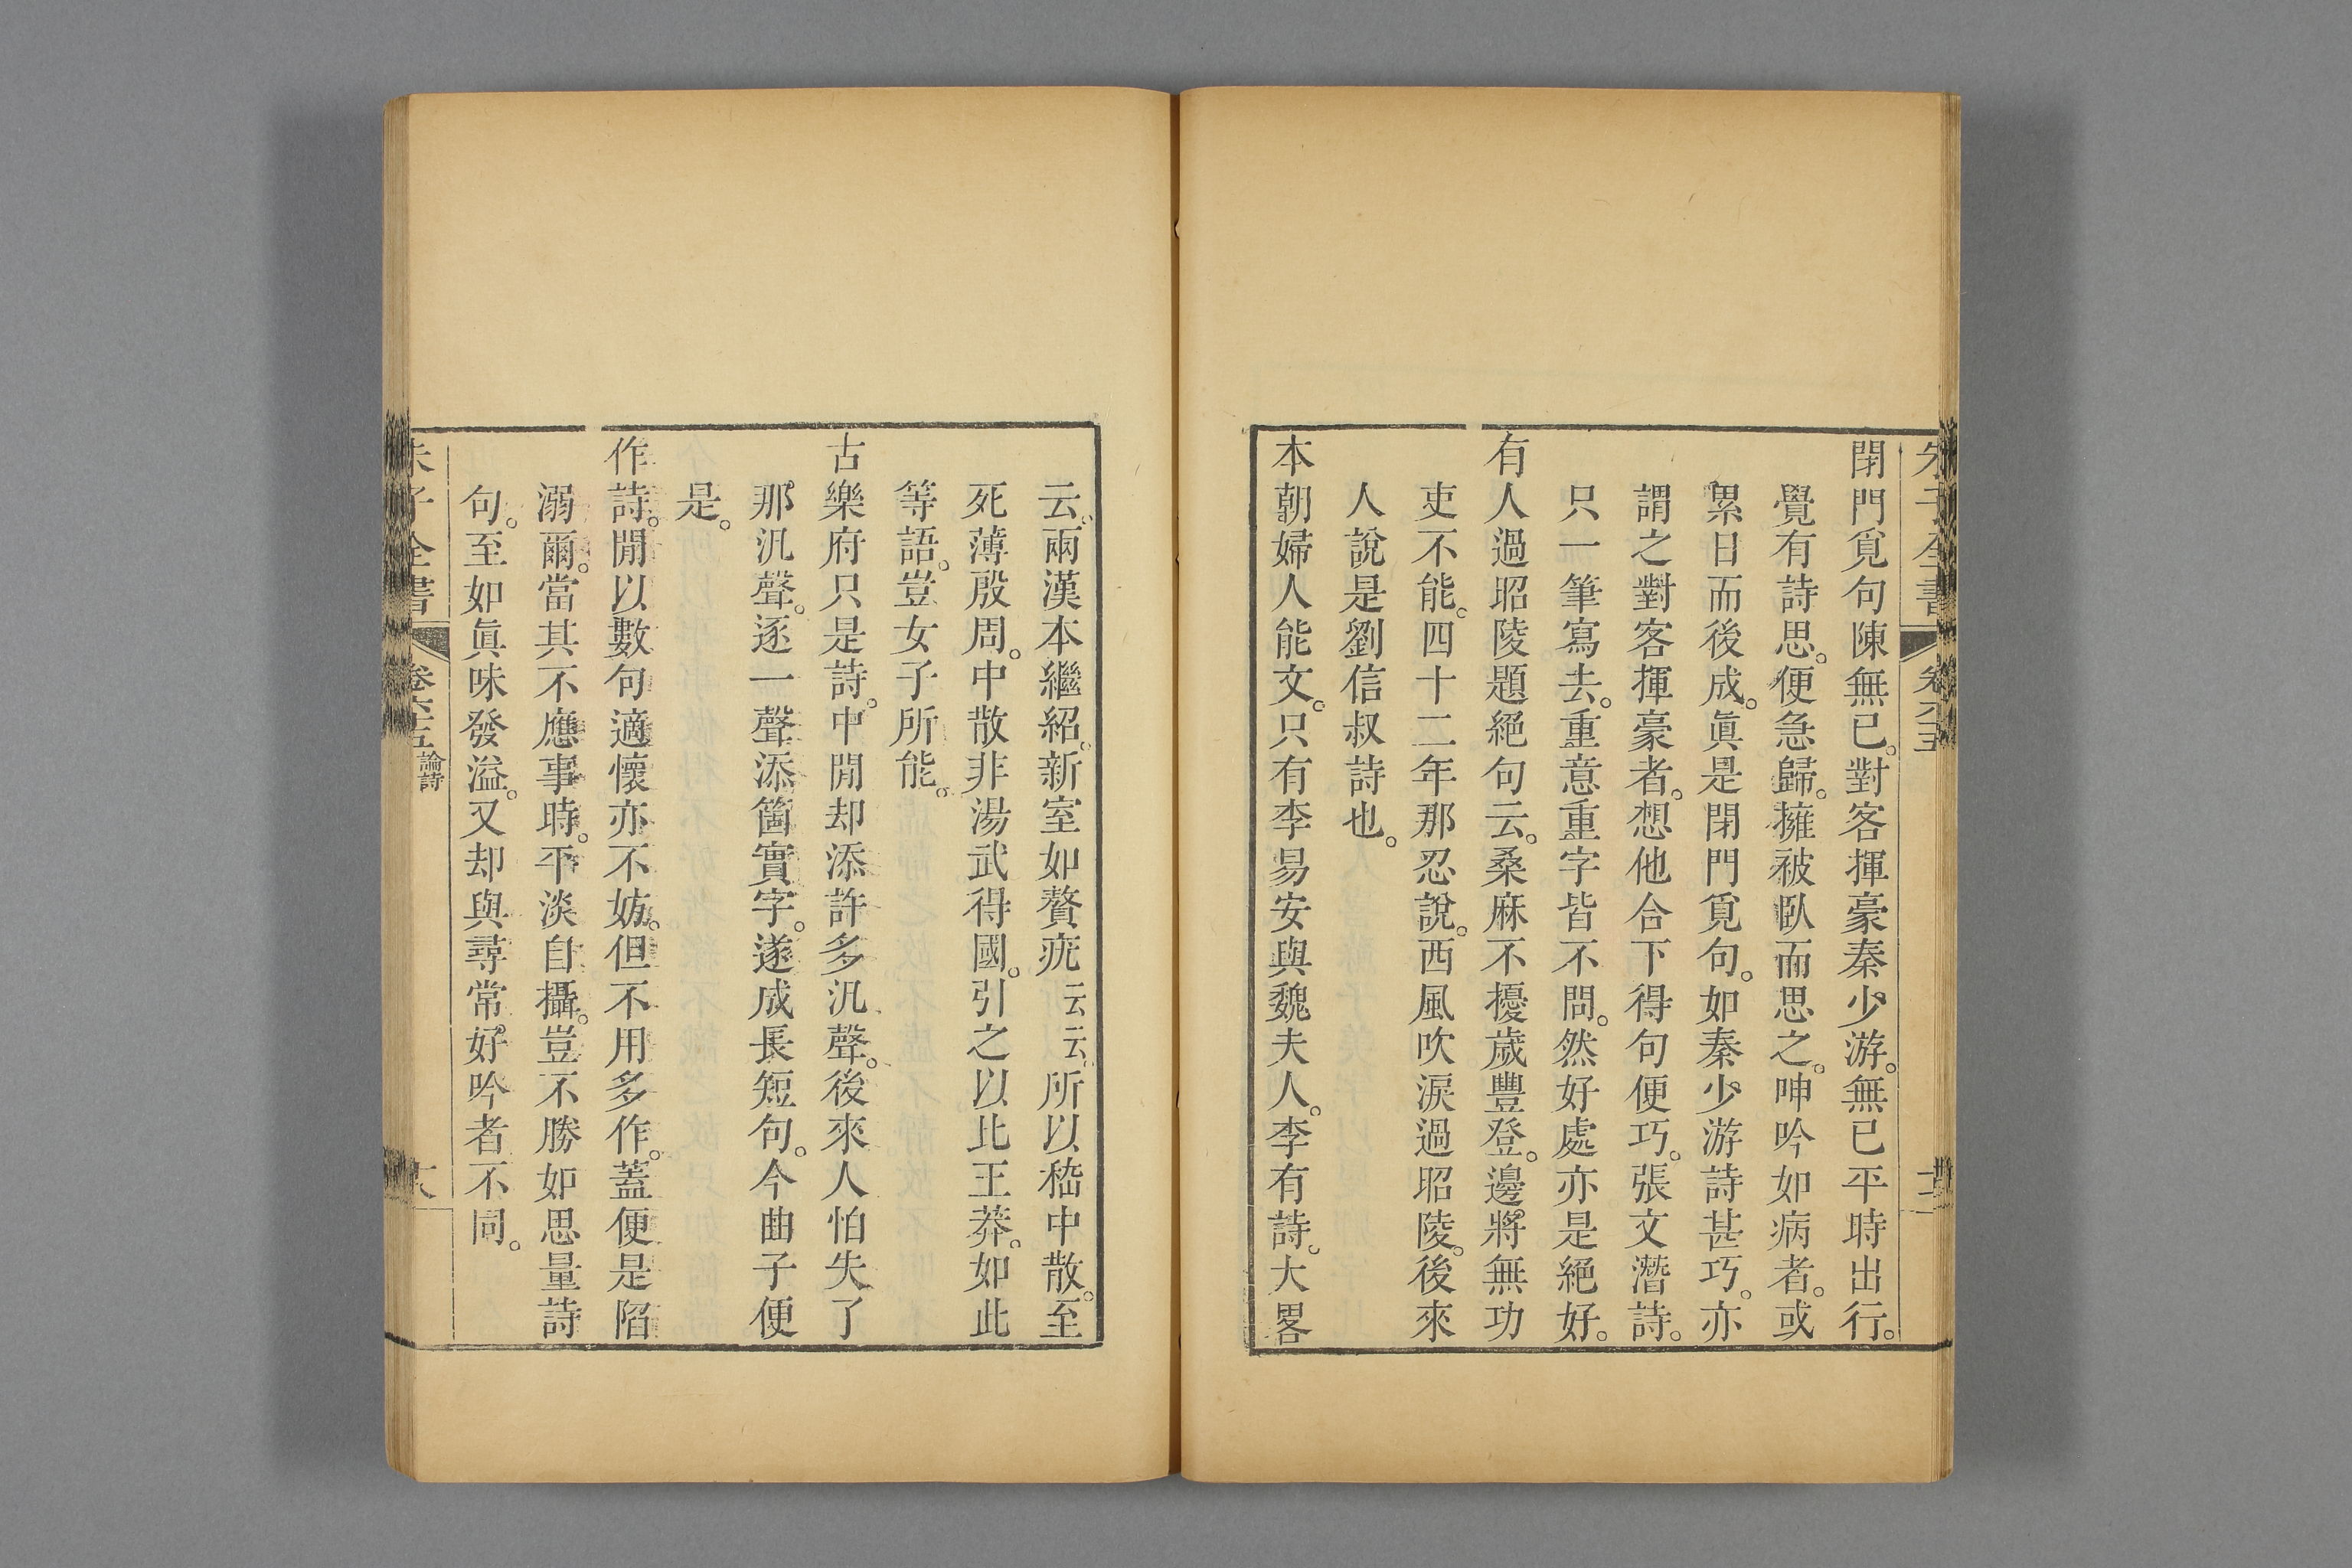 閉門覓句陳無已。對客揮豪秦少游。無已平時出行。
覺有詩思。便急歸。擁被臥而思之。呻吟如病者。或
累日而後成。眞是閉門覓句。如秦少游詩甚巧。亦
謂之對客揮豪者。想他合下得句便巧。張文潛詩。
只一筆寫去。重意重字皆不問。然好處亦是絕好。
有人過昭陵題絕句云。桑麻不擾歲豐登。邊將無功
吏不能。四十二年那忍說。西風吹淚過昭陵。後來
人說是劉信叔詩也。
本朝婦人能文。只有李易安與魏夫人。李有詩。大畧
云。兩漢本繼紹。新室如贅疣云云。所以嵇中散。至
死薄殷周。中散非湯武得國。引之以比王莽。如此
等語。豈女子所能。
古樂府只是詩。中閒却添許多汎聲。後來人怕失了
那汎聲。逐一聲添箇實字。遂成長短句。今曲子便
是。
作詩。閒以數句適懷亦不妨。但不用多作。蓋便是陷
溺爾。當其不應事時。平淡自攝。豈不勝如思量詩
句。至如眞味發溢。又却與尋常好吟者不同。
朱子全書
卷六十五 論詩